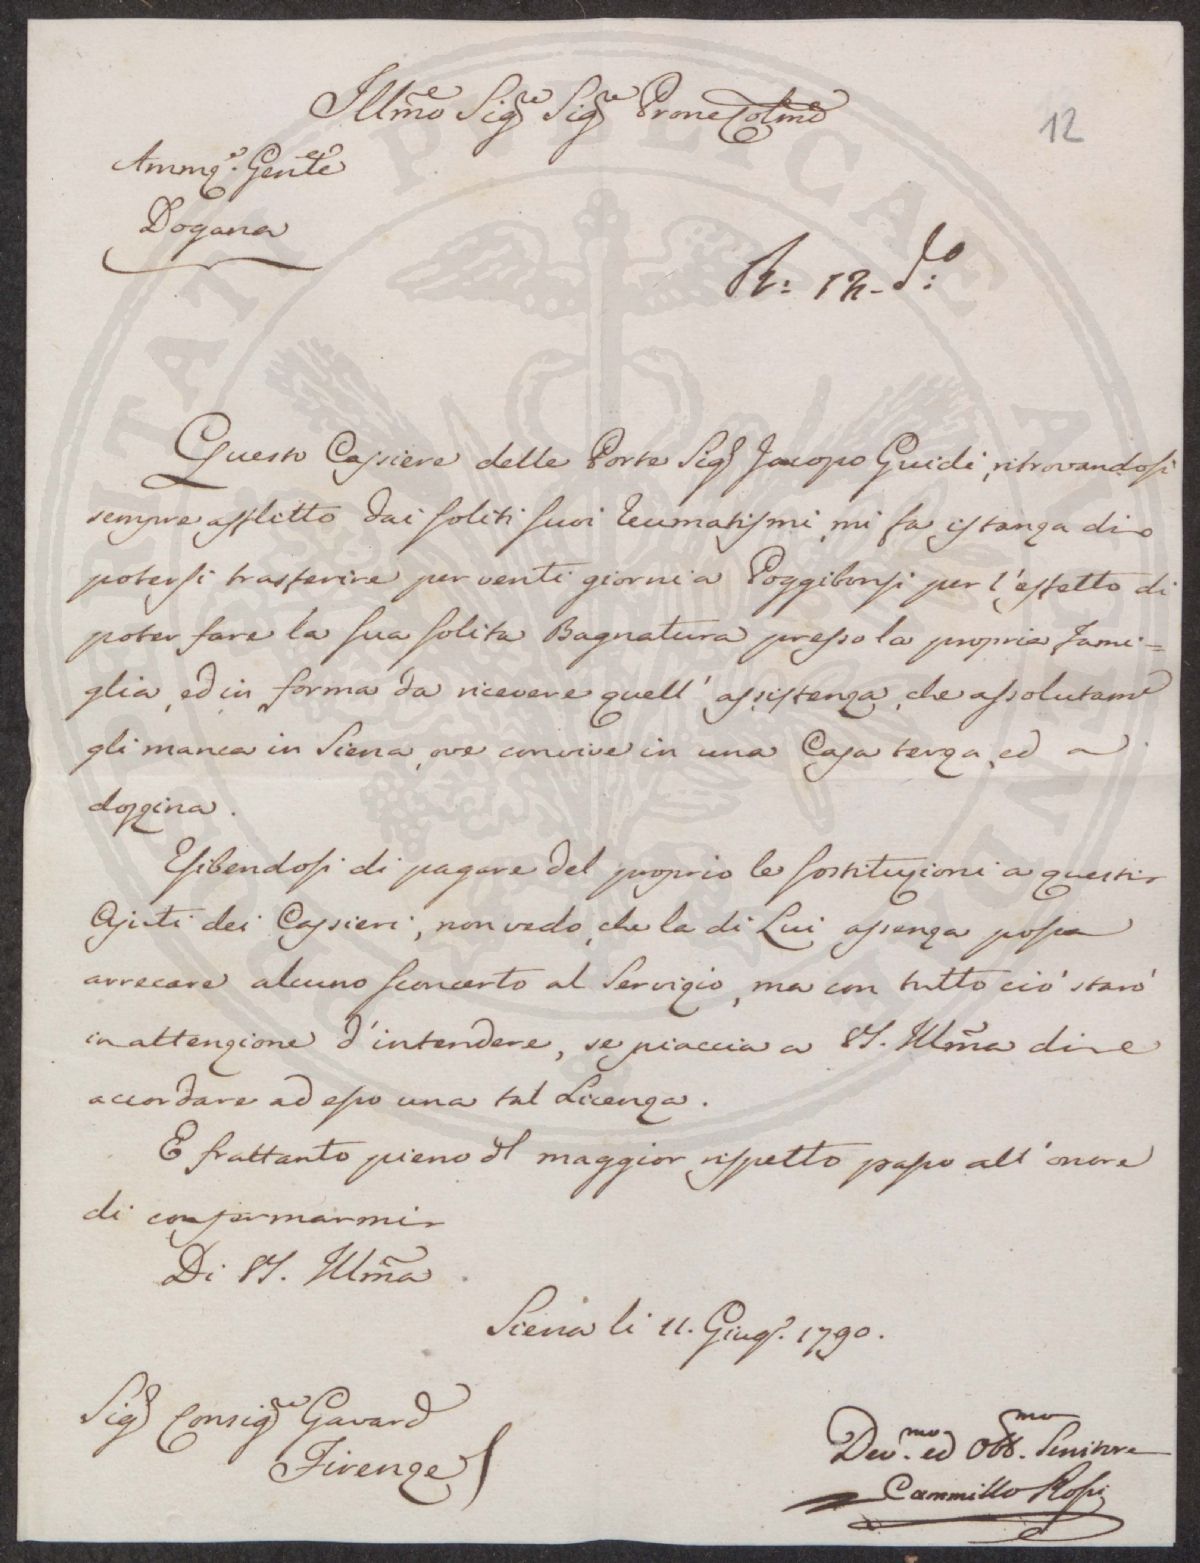 Illmo Sige Sige Prone Colmo
12
Ammne Genle
Dogana
R: 12. do:
Questo Cassiere delle Porte Sigr Jacopo Guidi, ritrovandosi
sempre afflitto dai soliti suoi reumatismi, mi fa istanza di
potersi trasferire per venti giorni a Poggibonsi per l'effetto di
poter fare la sua solita Bagnatura presso la propria Fami=
glia, ed in forma da ricevere quell'assistenza, che assolutame
gli manca in Siena, ove convive in una Casa terza, ed a
dozzina.
Esibendosi di pagare del proprio le sostituzioni a questi
Ajuti dei Cassieri, non vedo, che la di Lui assenza possa
arrecare alcuno sconcerto al Servizio, ma con tutto ciò starò
in attenzione d'intendere, se piaccia a VS. Illma di
accordare ad esso una tal Licenza.
E frattanto pieno del maggior rispetto passo all'onore
di confermarmi
Di VS. Illma
Siena li 11. Giugo. 1790.
Sigr Consigre Gavard
Firenze
Devmo. ed Obbmo. Servitore
Cammillo Rossi
PUBLICAE